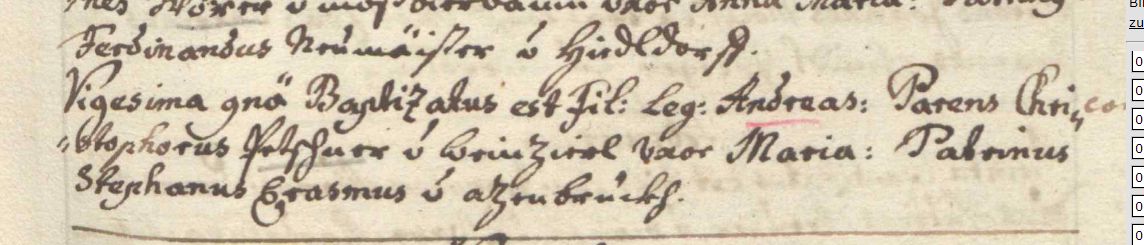 Anna Maria:
Ferdinandus Neumäister v Hiedldorff.
Vigesima qnā Baptizatus est Fil: leg: Andreas: Parens Chri„
„stophorus v Weinzierl vxor Maria: Patrinus
Stephanus Erasmus v Azenbruckh.
zu
0
0
0
0
0
0
0